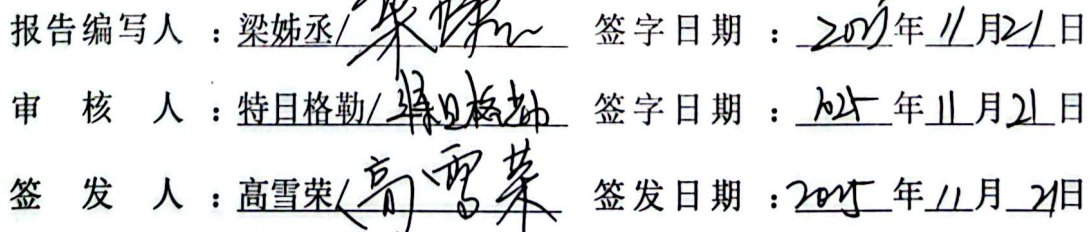 报告编写人：梁姊丞/梁姊丞 签字日期：2025年11月21日
审核人：特日格勒/特日格勒 签字日期：2025年11月21日
签发人：高雪荣/高雪荣 签发日期：2025年11月21日